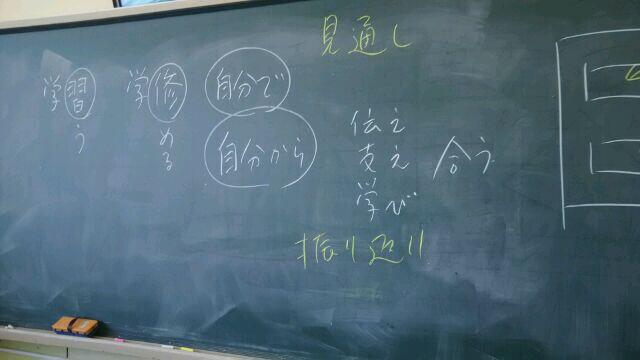 見通し
学習
う
学修
める
自分で
自分から
伝え
支え
学び
合う
振り返り